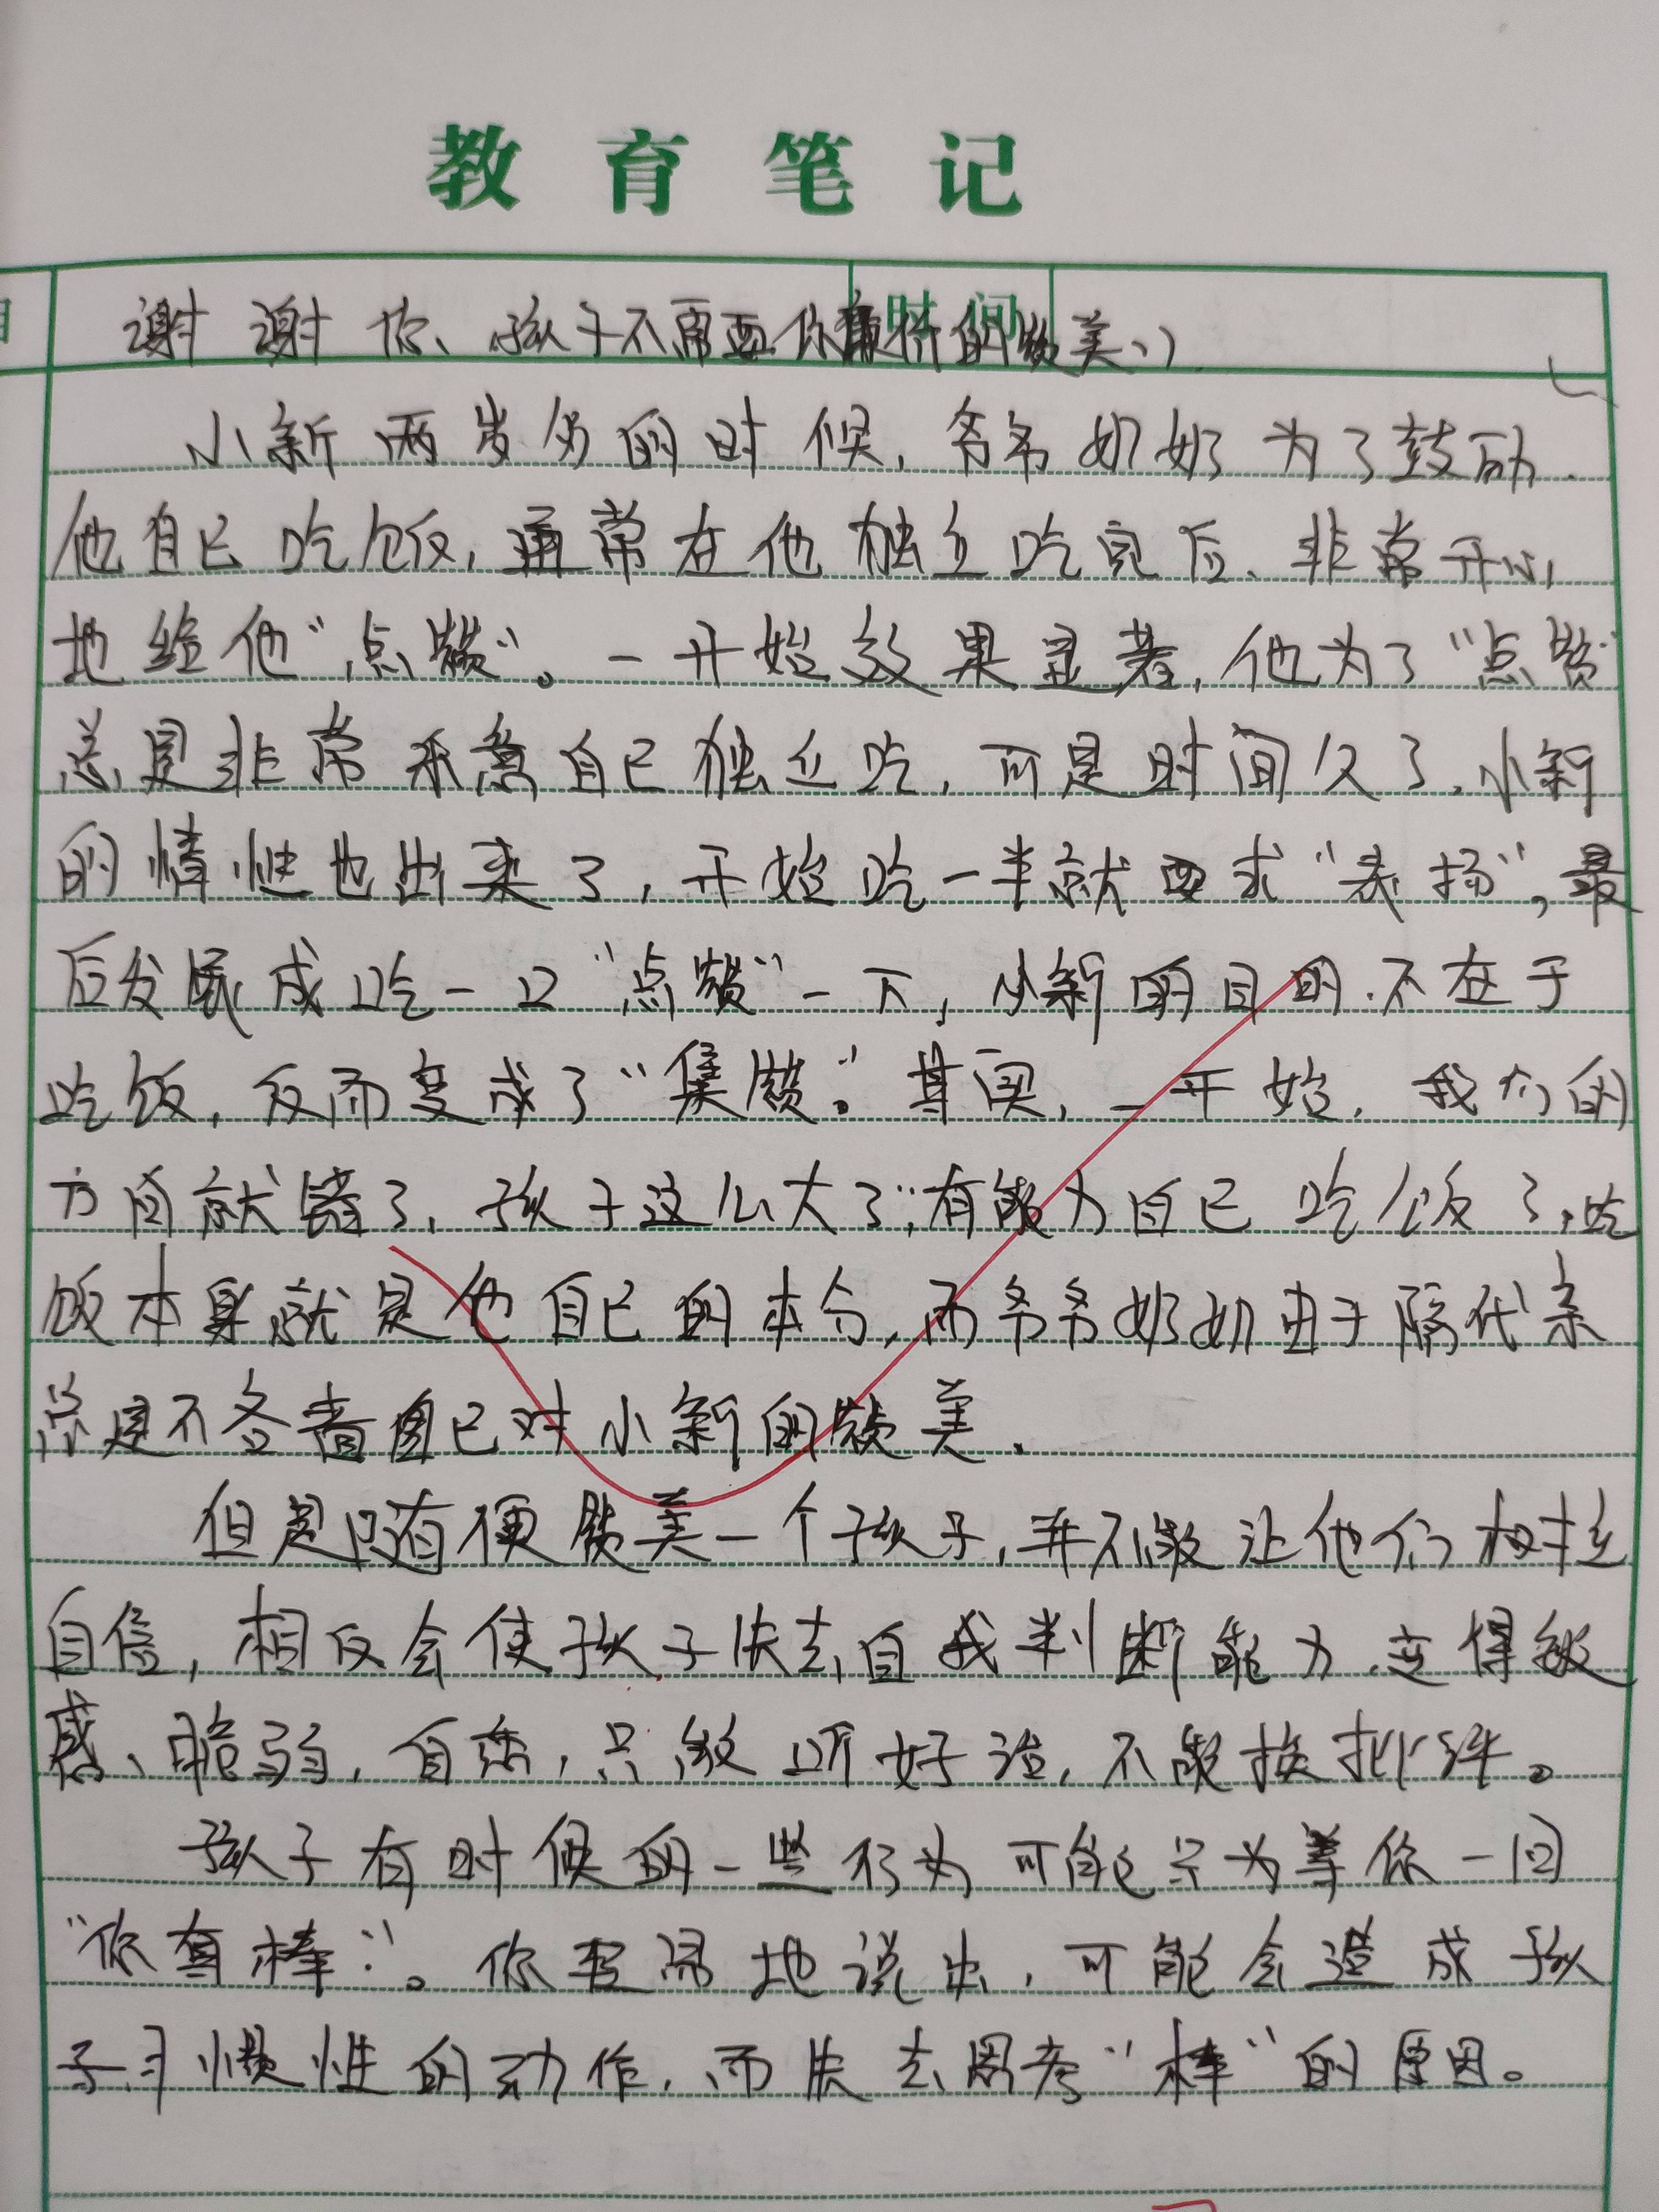 教育笔记
时间
谢谢你、孩子不需要你廉价的赞美、）
小新两岁多的时候，爷爷奶奶为了鼓励
他自己吃饭，通常在他独立吃完后、非常开心
地给他“点赞”。一开始效果显著，他为了“点赞”
总是非常乐意自己独立吃，可是时间久了，小新
的惰性也出来了，开始吃一半就要求“表扬”，最
后发展成吃一口“点赞”一下，小新的目的.不在于
吃饭，反而变成了“集赞”。其实，一开始，我们的
方向就错了，孩子这么大了，有能力自己吃饭了，吃
饭本身就是他自己的本分，而爷爷奶奶由于隔代亲
总是不吝啬自己对小新的赞美。
但是只有便赞美一个孩子，并不能让他们树立
自信，相反会使孩子失去自我判断能力，变得敏
感、脆弱，自恋，只能听好话，不能挨批评。
孩子有时候的一些行为可能只为等你一回
“你真棒”。你轻易地说出，可能会造成孩
子习惯性的动作，而失去思考“棒”的原因。